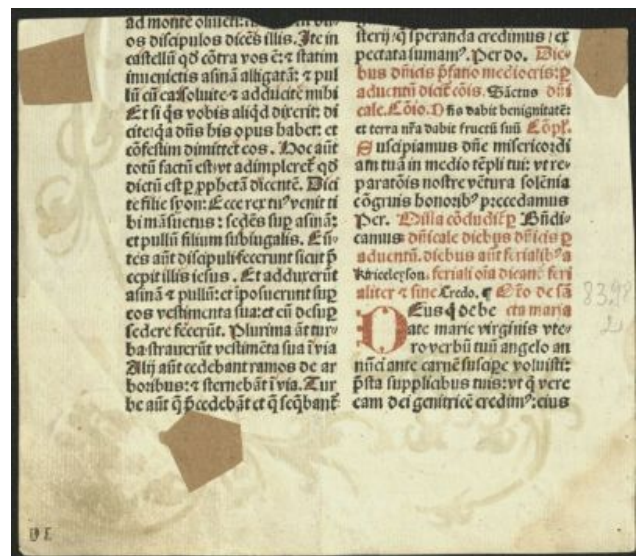 ad monte oliueti:
os discipulos dicēs illis. Ite in
castellū qd̄ cōtra vos ē: ⁊ statim
inuenietis asinā alligatā: ⁊ pul
lū cū ea: soluite ⁊ adducite mihi
Et si q̄s vobis aliqd̄ dixerit: di
cite: qa dn̄s his opus habet: et
cōfestim dimittet eos. Hoc aūt
totū factū est: vt adimpleret̄ qd̄
dictū est ꝑ ꝓphetā dicentē. Dici
te filie syon: Ecce rex tuꝰ venit ti
bi māsuetus: sedēs suꝑ asinā:
et pullū filium subiugalis. Eū-
tes aūt discipuli fecerunt sicut p̄
cepit illis iesus. Et adduxerūt
asinā ⁊ pullū: et īposuerunt suꝑ
eos vestimenta sua: et eū desuꝑ
sedere fecerūt. Plurima aūt tur-
ba strauerūt vestimēta sua ī via
Alij aūt cedebant ramos de ar
boribus: ⁊ sternebāt ī via. Tur
be aūt q̄ p̄cedebāt et q̄ seq̄bant̄
sterij: q̄ speranda credimus: ex
pectata sumamꝰ. Per do. Die-
bus dn̄icis p̄fatio mediocris: ꝑ
aduentū dicit̄ cōis. Sāctus dn̄i
cale. Cōio. Dn̄s dabit benignitatē:
et terra nr̄a dabit fructū suū Cōpl'.
Suscipiamus dn̄e misericordi
am tuā in medio tēpli tui: vt re-
paratōis nostre vētura solēnia
cōgruis honoribꝰ precedamus
Per. Missa cōcludit̄ ꝑ Bn̄di-
camus dn̄icale diebus dn̄icis ꝑ
aduentū. diebus aūt ferialibꝰ a
Kirieeleyson. feriali oīa dicant̄ feri
aliter ⁊ sine Credo. ¶ Co̅ de sā
cta maria
DEus q̄ de be
ate marie virginis vte-
ro verbū tuū angelo an
nūciante carnē suscipe voluisti:
p̄sta supplicibus tuis: vt q̄ vere
eam dei genitricē credimꝰ: eius
83.98
2